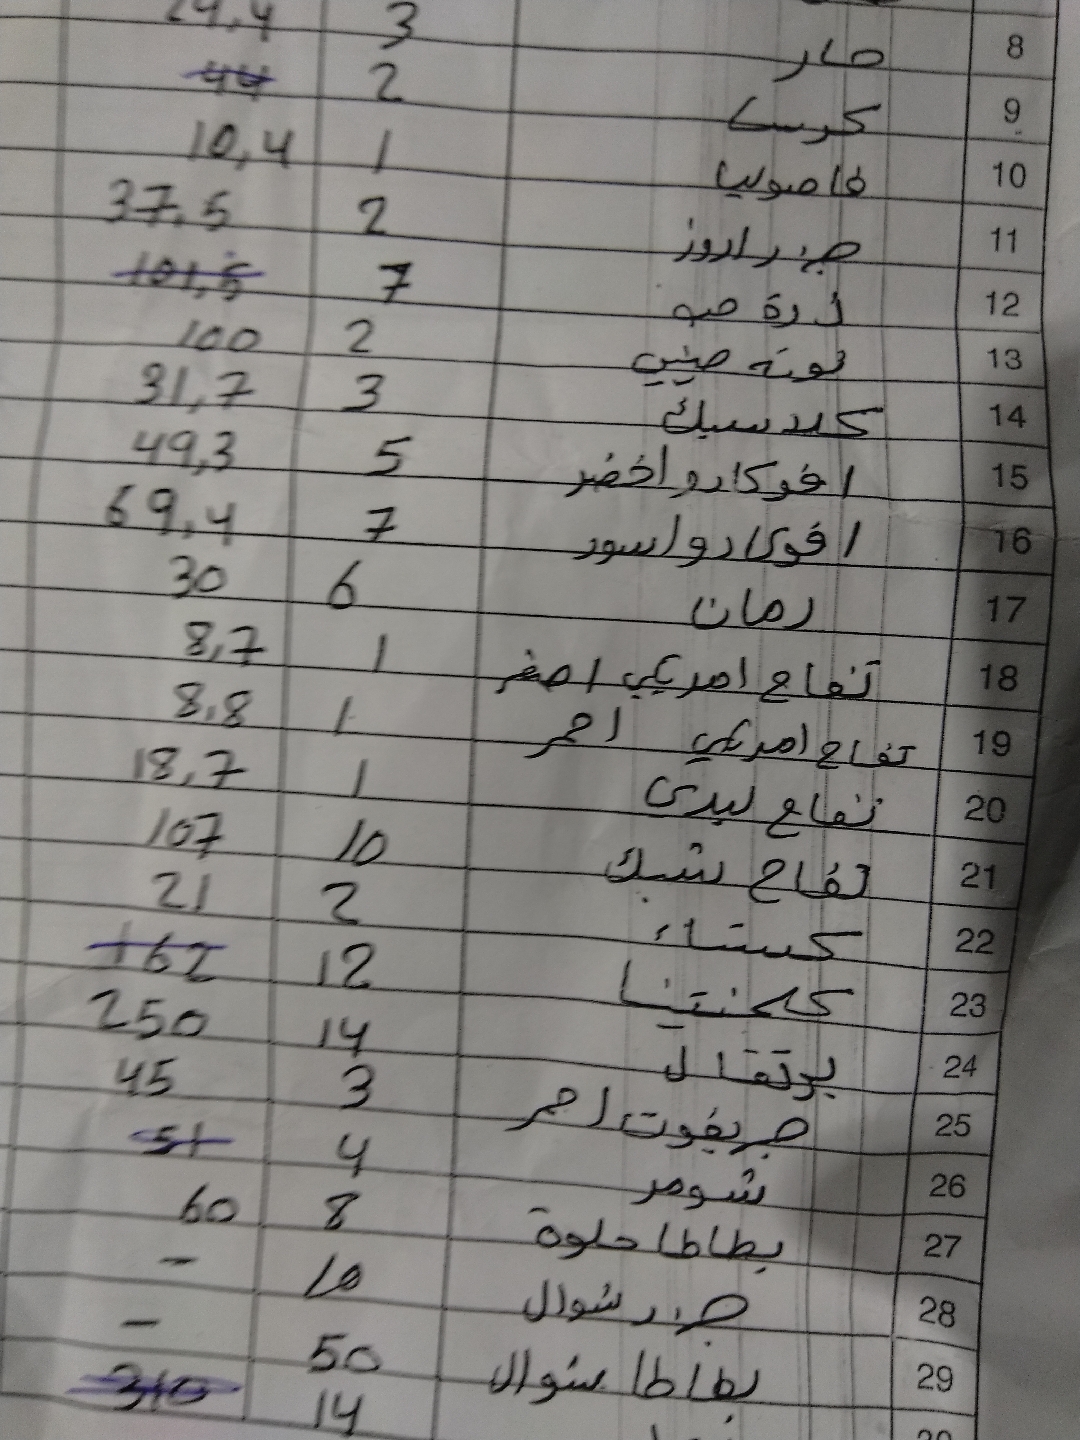 8 حار 3
9 2 44
10 فاصوليا 1 10,4
11 جزر اروز 2 37.5
12 ذرة حب 7 101,5
13 توته صيني 2 100
14 3 31,7
15 افوكادو اخضر 5 49,3
16 افوكادو اسود 7 69,4
17 رمان 6 30
18 تفاح امريكي اصفر 1 8,7
19 تفاح امريكي احمر 1 8,8
20 تفاح ليدي 1 18,7
21 تفاح شبك 10 107
22 كستناء 2 21
23 كلمنتينا 12 162
24 برتقال 14 250
25 جريفوت احمر 3 45
26 شومر 4 51
27 بطاطا حلوة 8 60
28 جزر شوال 10 -
29 بطاطا شوال 50 -
14 310